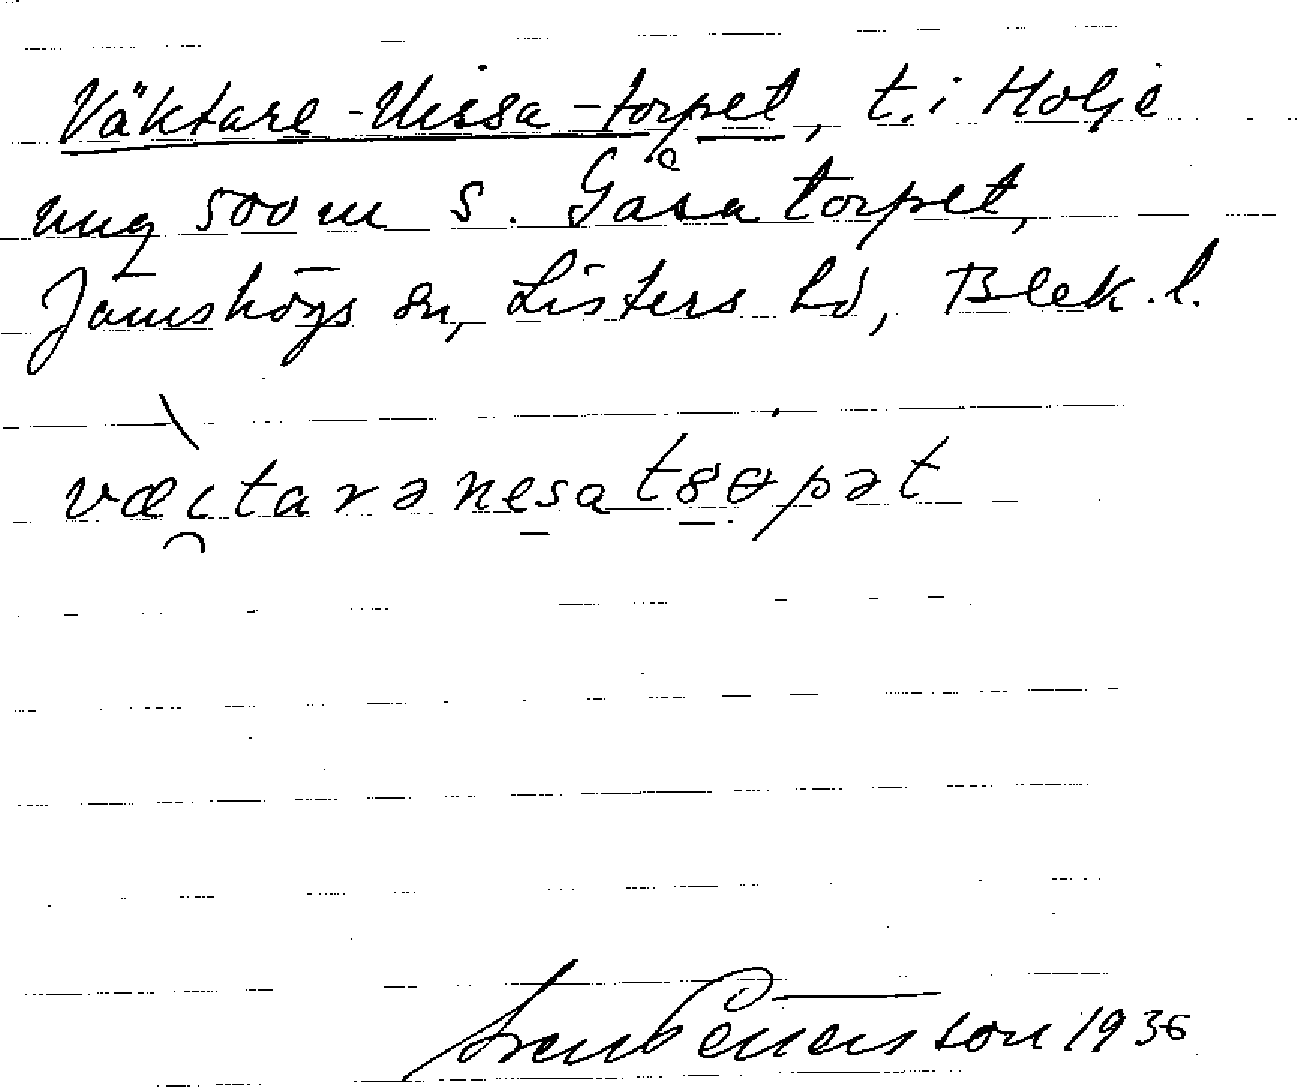 Väktare-Nissa-torpet, t. i Holje
ung 500 m S. Gåsatorpet,
Jämshögs sn, Listers hd, Blek. l.
væktarənesatorpət
Sven Benson 1936